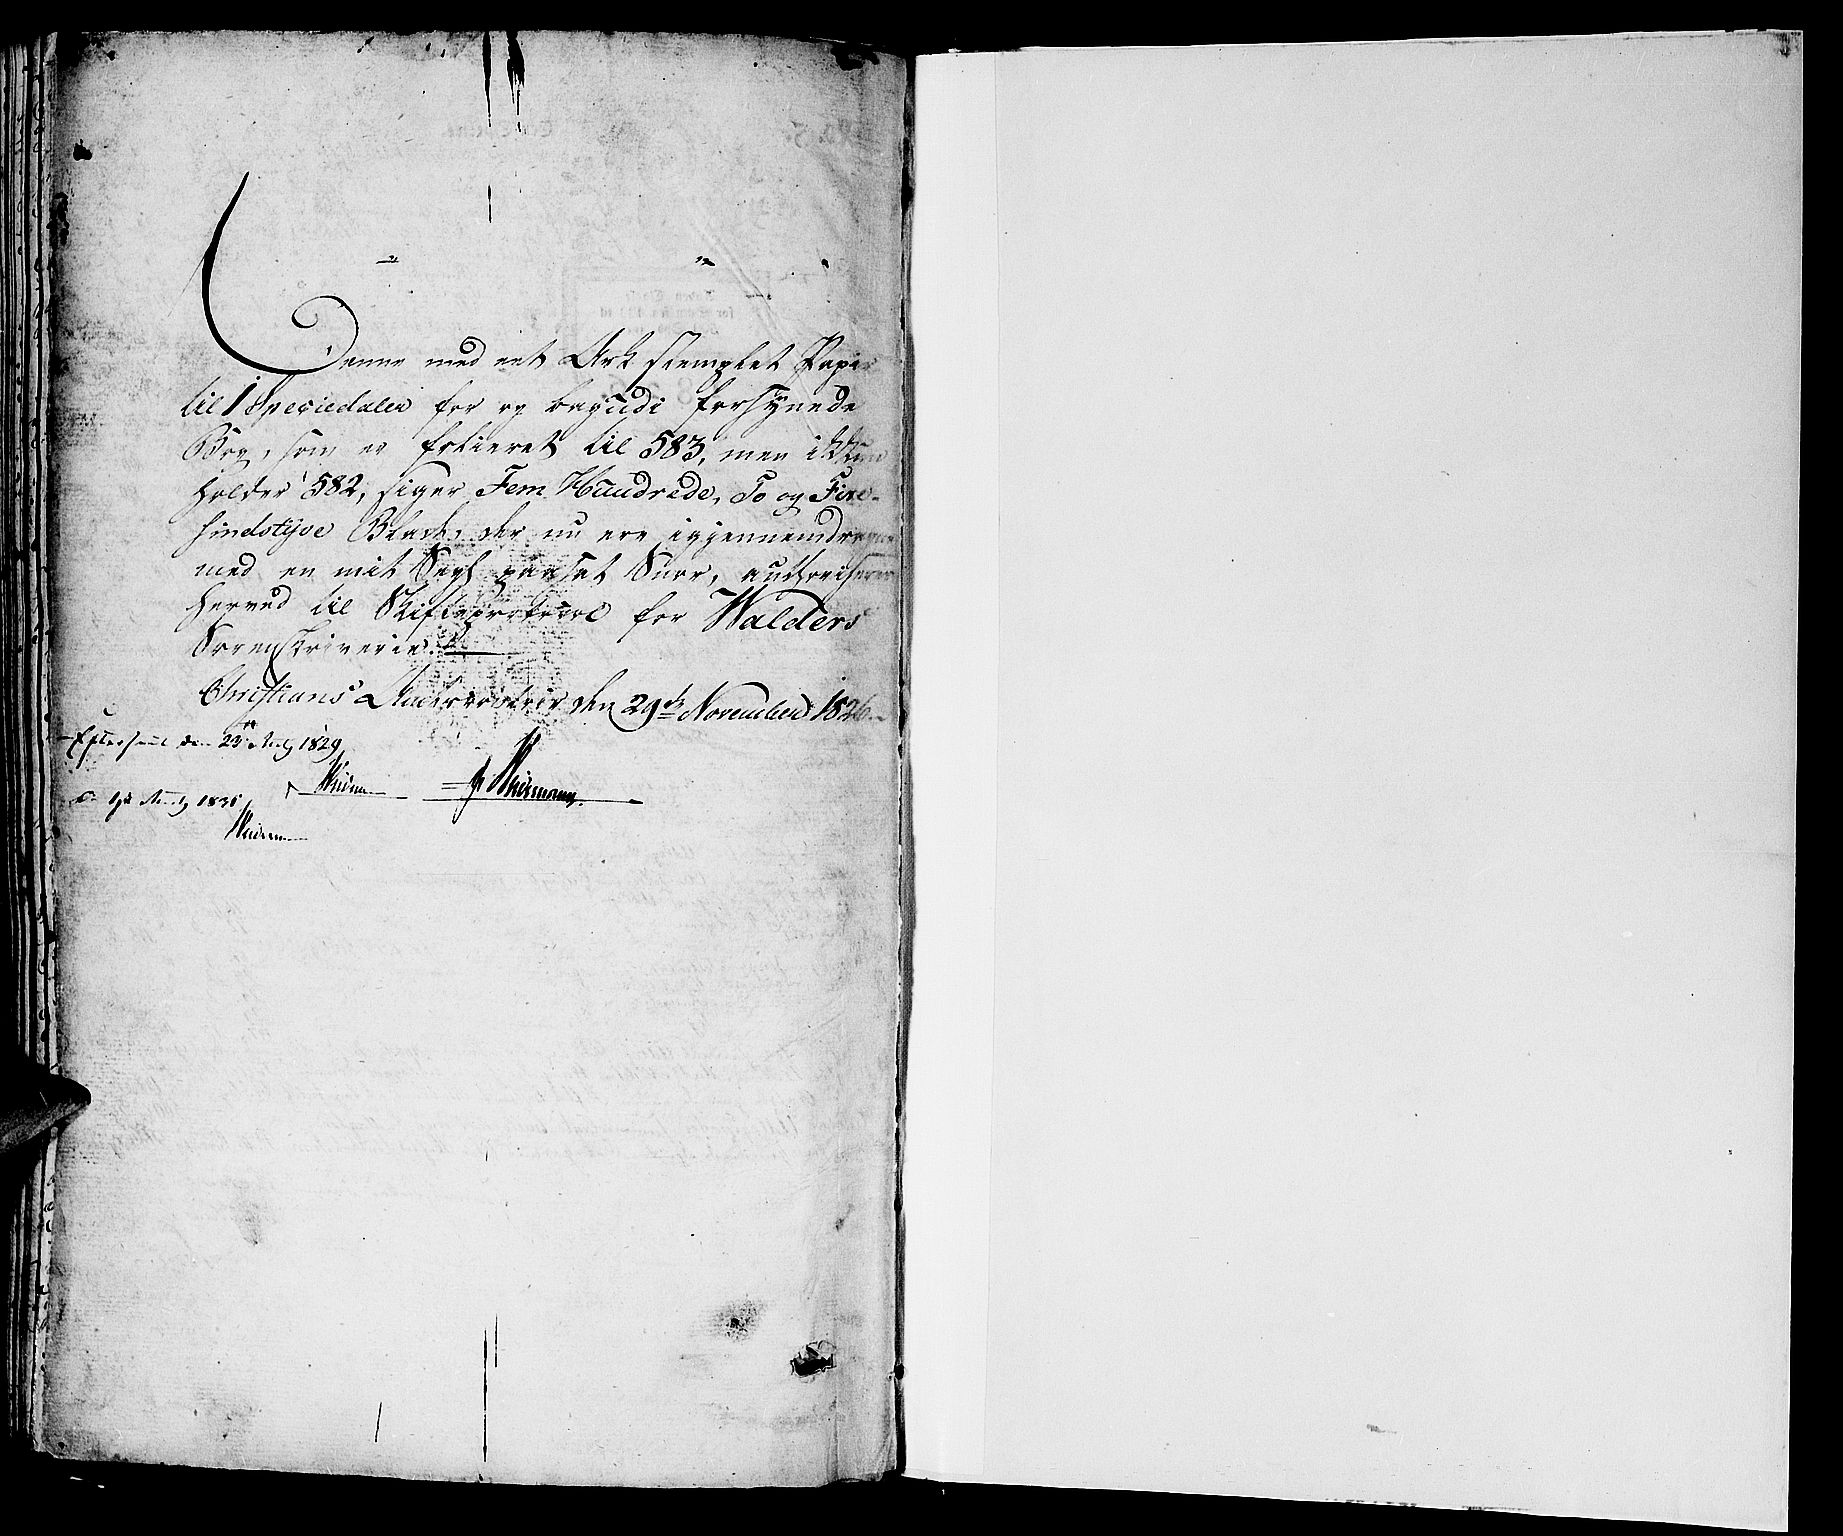 Denne med eet Ark stemplet Papir
til 1 Speciedaler for og bagudi forsÿnede
Bog, som er folieret til 583, men ikkun
holder 582, siger Fem Hundrede, To og Fire-
sindstÿve Blade, der nu ere igjennemdragne
med en mit Segl paasat Snor, authoriseres
herved til Skifteprotocol for Walders
Sorenskriverie.
Christians Amt den 29de November 1826.
Efterseet den 23 Aug 1829
den 1ste Aug 1835